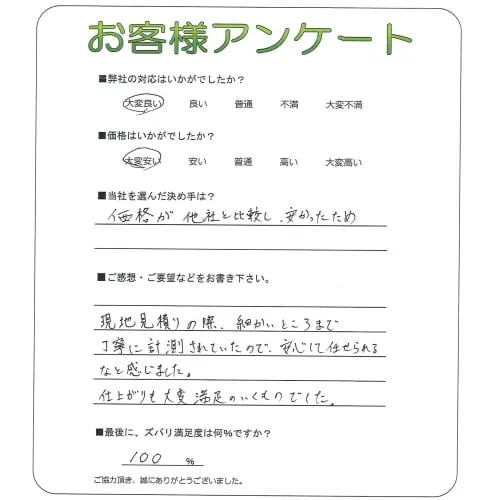 お客様アンケート
■弊社の対応はいかがでしたか？
大変良い 良い 普通 不満 大変不満
■価格はいかがでしたか？
大変安い 安い 普通 高い 大変高い
■当社を選んだ決め手は？
価格が他社と比較し、安かったため
■ご感想・ご要望などをお書き下さい。
現地見積りの際、細かいところまで
丁寧に計測されていたので、安心して任せられる
なと感じました。
仕上がりも大変満足のいくものでした。
■最後に、ズバリ満足度は何％ですか？
100 ％
ご協力頂き、誠にありがとうございました。